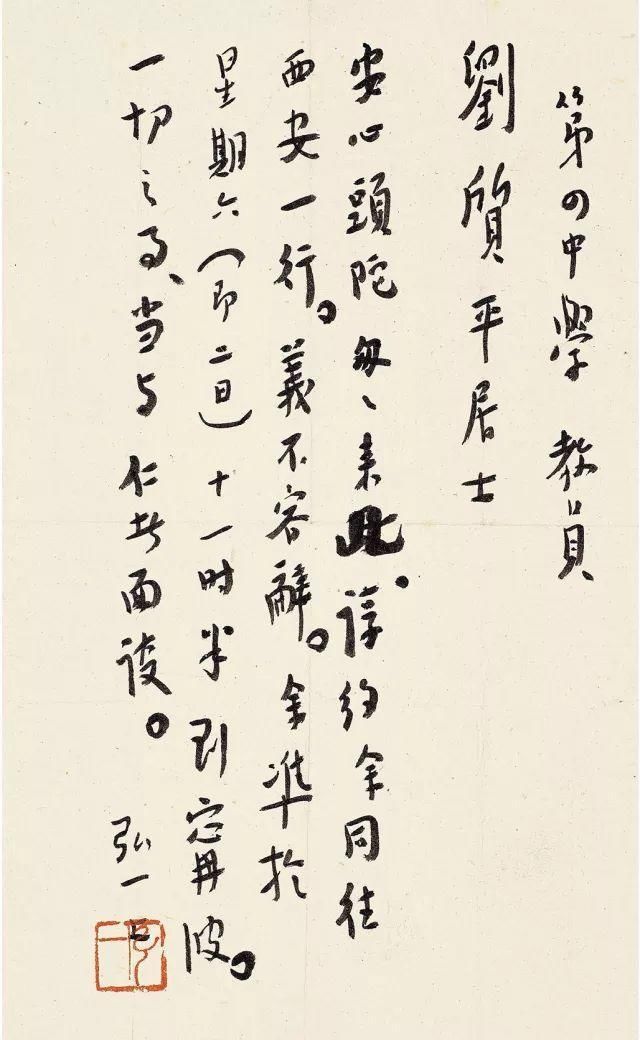 第四中學 教員
劉質平居士
安心頭陀匆匆來此。諄約余同往
西安一行。義不容辭。余準於
星期六（即二日）十一时半到宁再波。
一切之事、当与仁者面谈。
弘一上